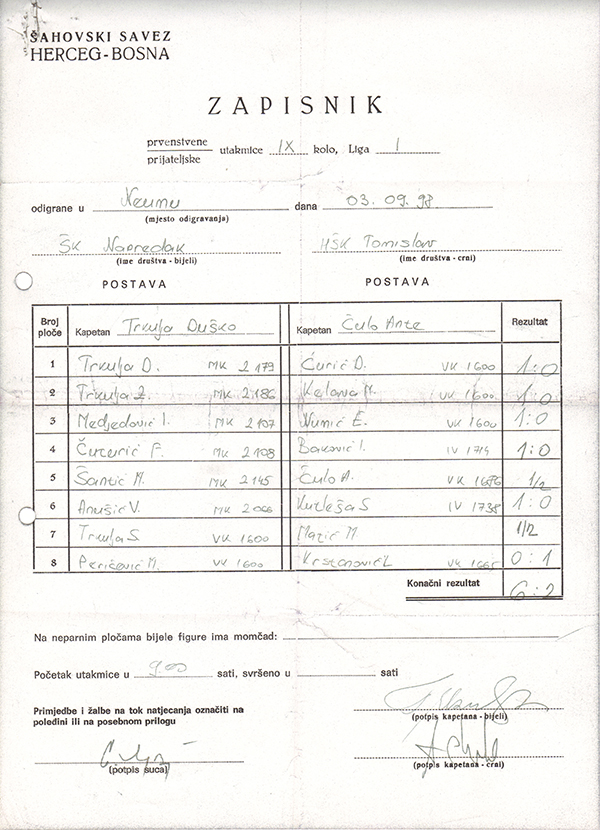 ŠAHOVSKI SAVEZ
HERCEG-BOSNA
ZAPISNIK
prvenstvene
prijateljske
utakmice IX kolo, Liga I
odigrane u Neumu dana 03.09.98
(mjesto odigravanja)
ŠK Napredak HŠK Tomislav
(ime društva - bijeli) (ime društva - crni)
POSTAVA POSTAVA
Broj ploče Kapetan Trkulja Duško Kapetan Čulo Ante Rezultat
1 Trkulja D. MK 2179 Ćurić D. VK 1600 1:0
2 Trkulja Z. MK 2186 M. VK 1600 1:0
3 Medjedović I. MK 2107 Numić E. VK 1600 1:0
4 F. MK 2108 Baković I. IV 1714 1:0
5 Šantić M. MK 2145 Čulo A. VK 1686 1/2
6 Anušić V. MK 2066 Kutleša S IV 1738 1:0
7 Trkulja S. VK 1600 Mazić M 1/2
8 Peričević M. VK 1600 Krstanović L VK 1665 0:1
Konačni rezultat 6:2
Na neparnim pločama bijele figure ima momčad:
Početak utakmice u 9.00 sati, svršeno u sati
Primjedbe i žalbe na tok natjecanja označiti na
poleđini ili na posebnom prilogu
(potpis kapetana - bijeli)
(potpis suca)
(potpis kapetana - crni)